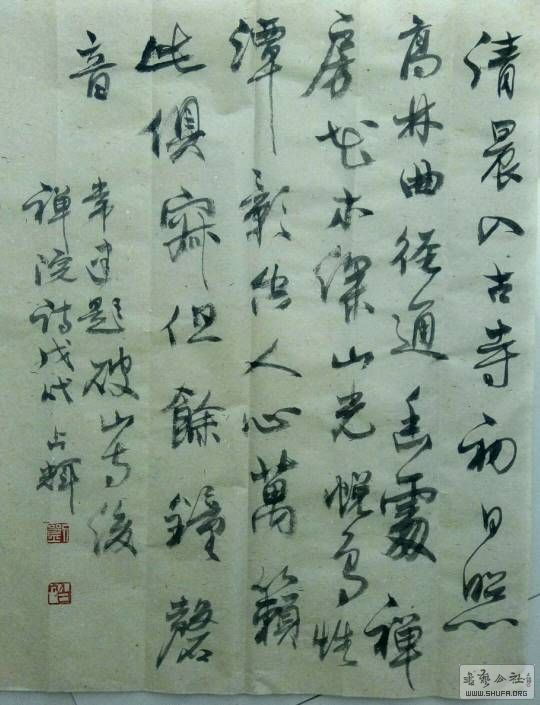 清晨入古寺初日照
高林曲径通幽處禪
房花木深山光悅鳥性
潭影人心萬籟
此俱寂但餘鐘磬
音
常建題破山寺後
禪院詩戊戌占輝
书艺公社
WWW.SHUFA.ORG